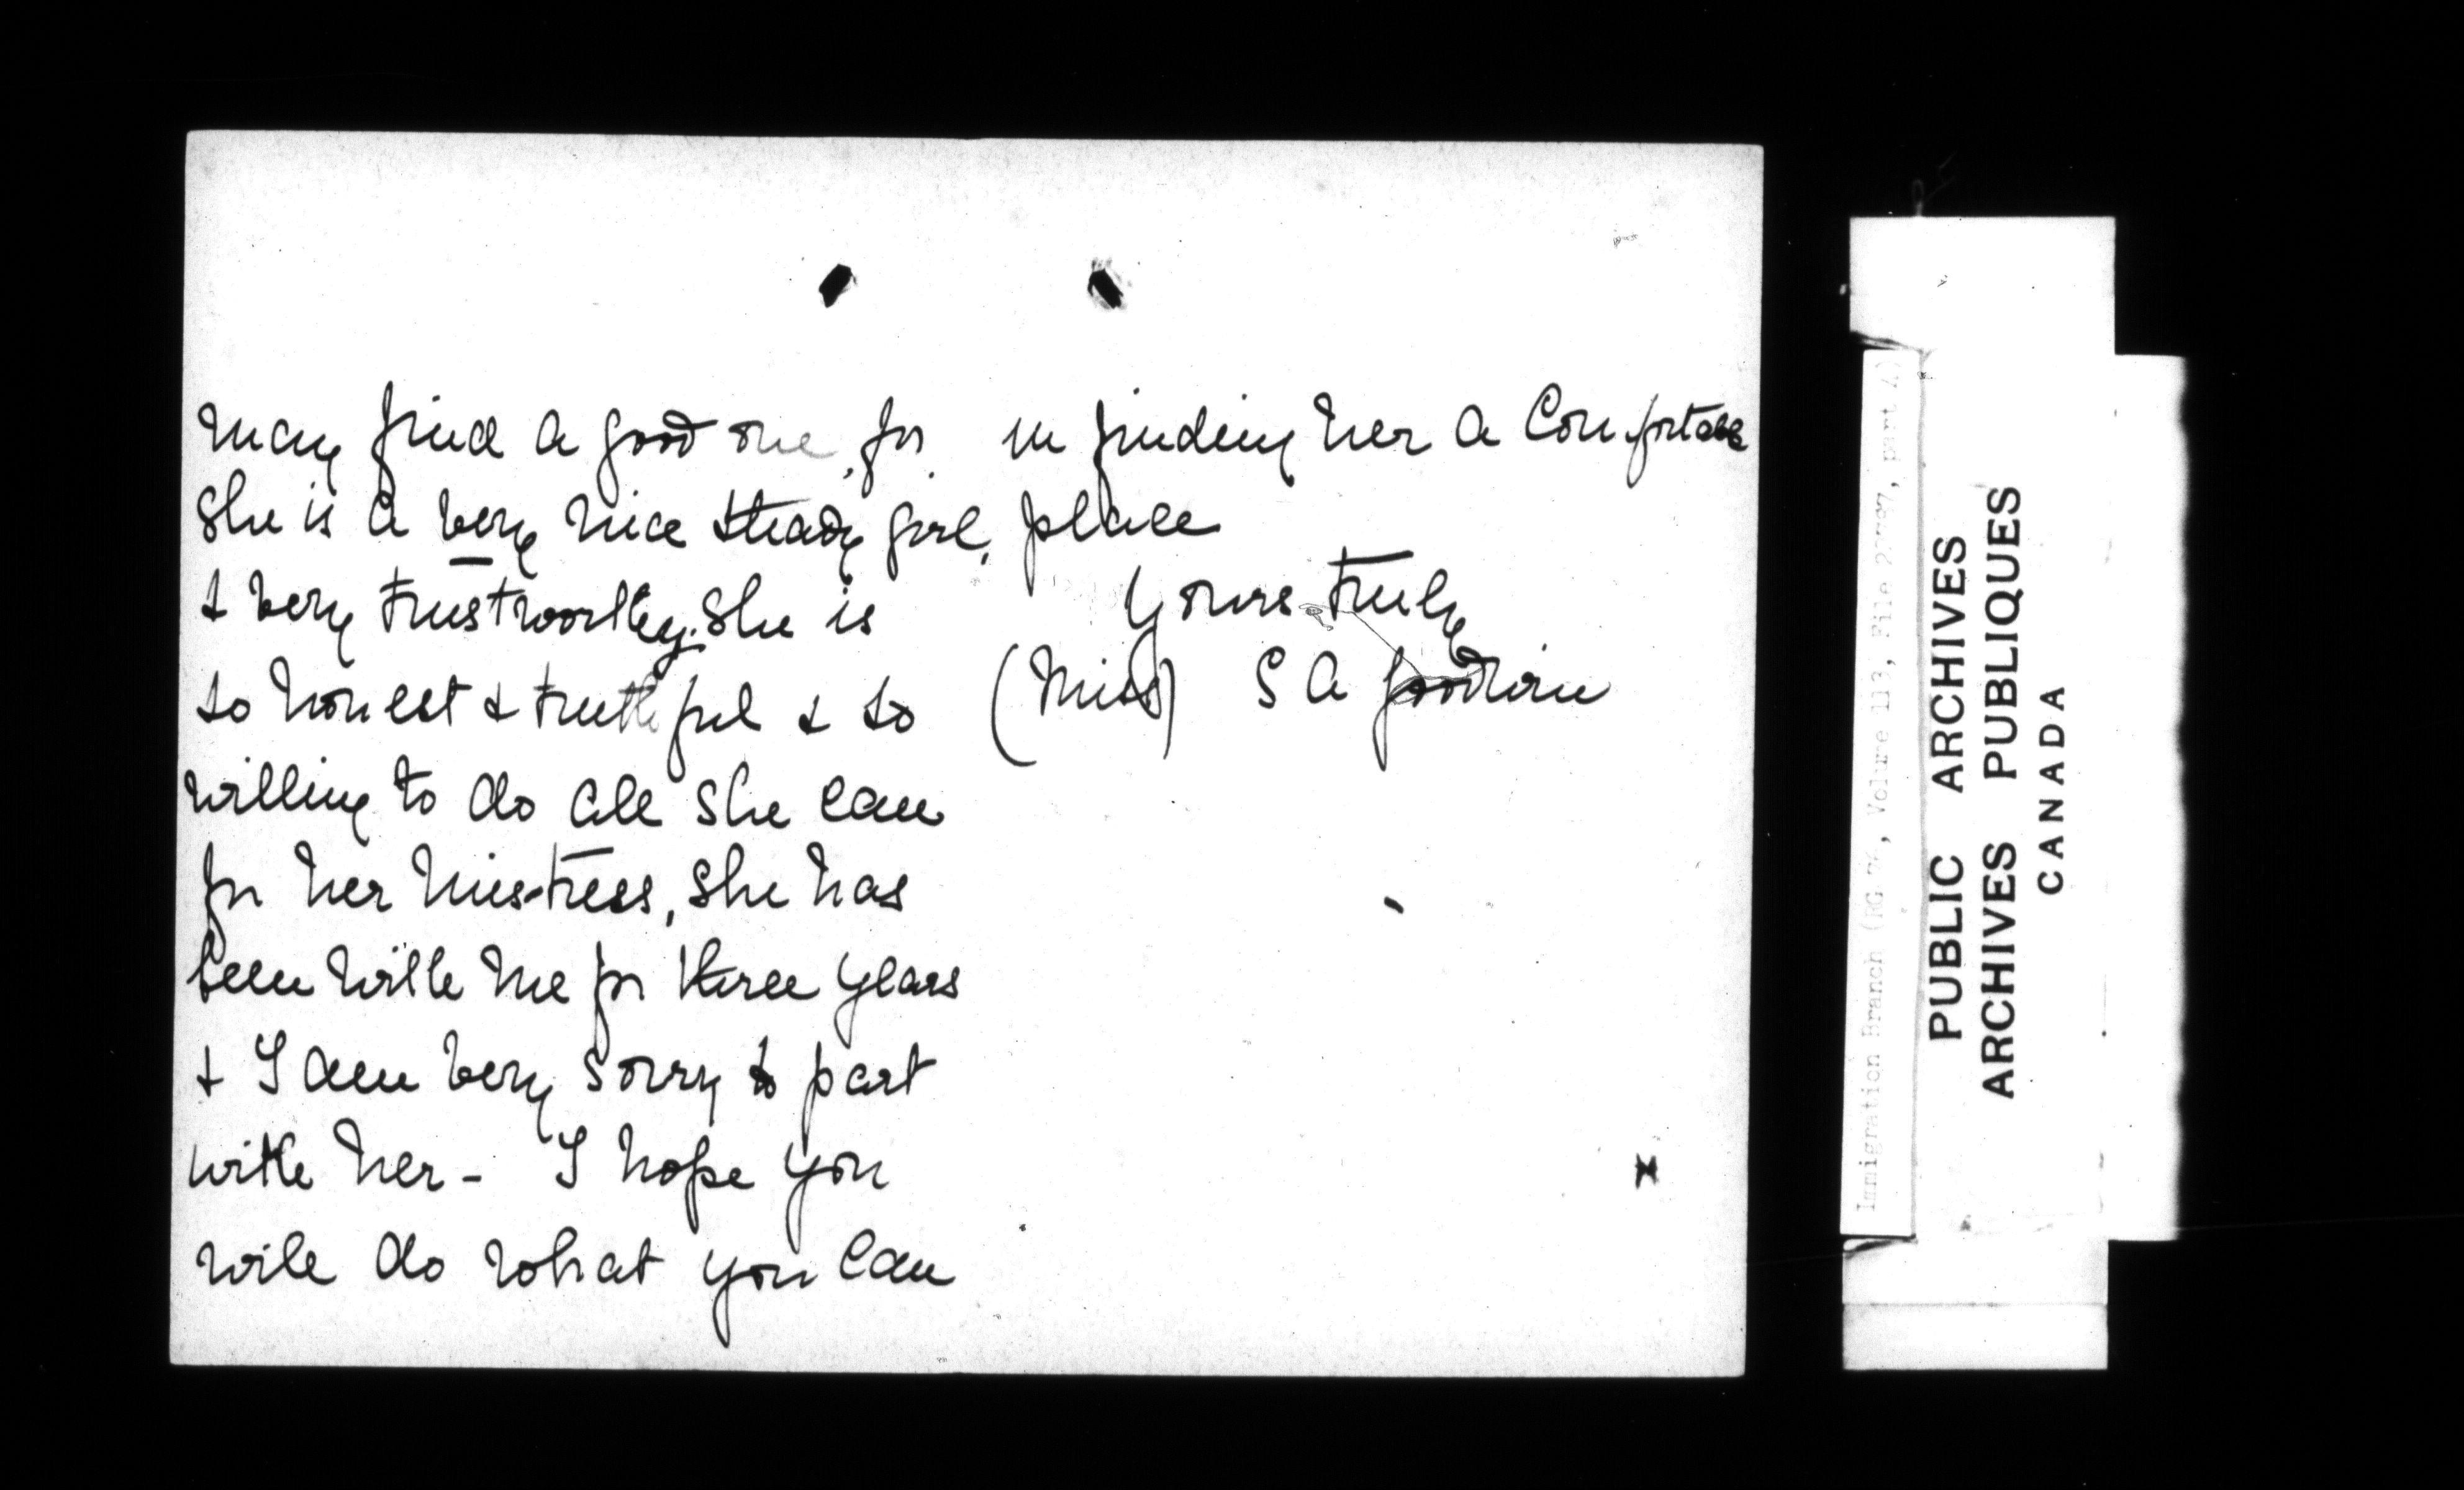 may find a good one, for
she is a very nice steady girl,
& very trustworthy. She is
so honest & truthful & so
willing to do all she can
for her mistress, she has
been with me for three years
& I am very sorry to part
with her - I hope you
will do what you can
in finding her a Comfortable
place
Yours truly
(Miss) S A Goodwin
Immigration Branch (RG 76, Volume 113, File part 4)
PUBLIC ARCHIVES
ARCHIVES PUBLIQUES
CANADA